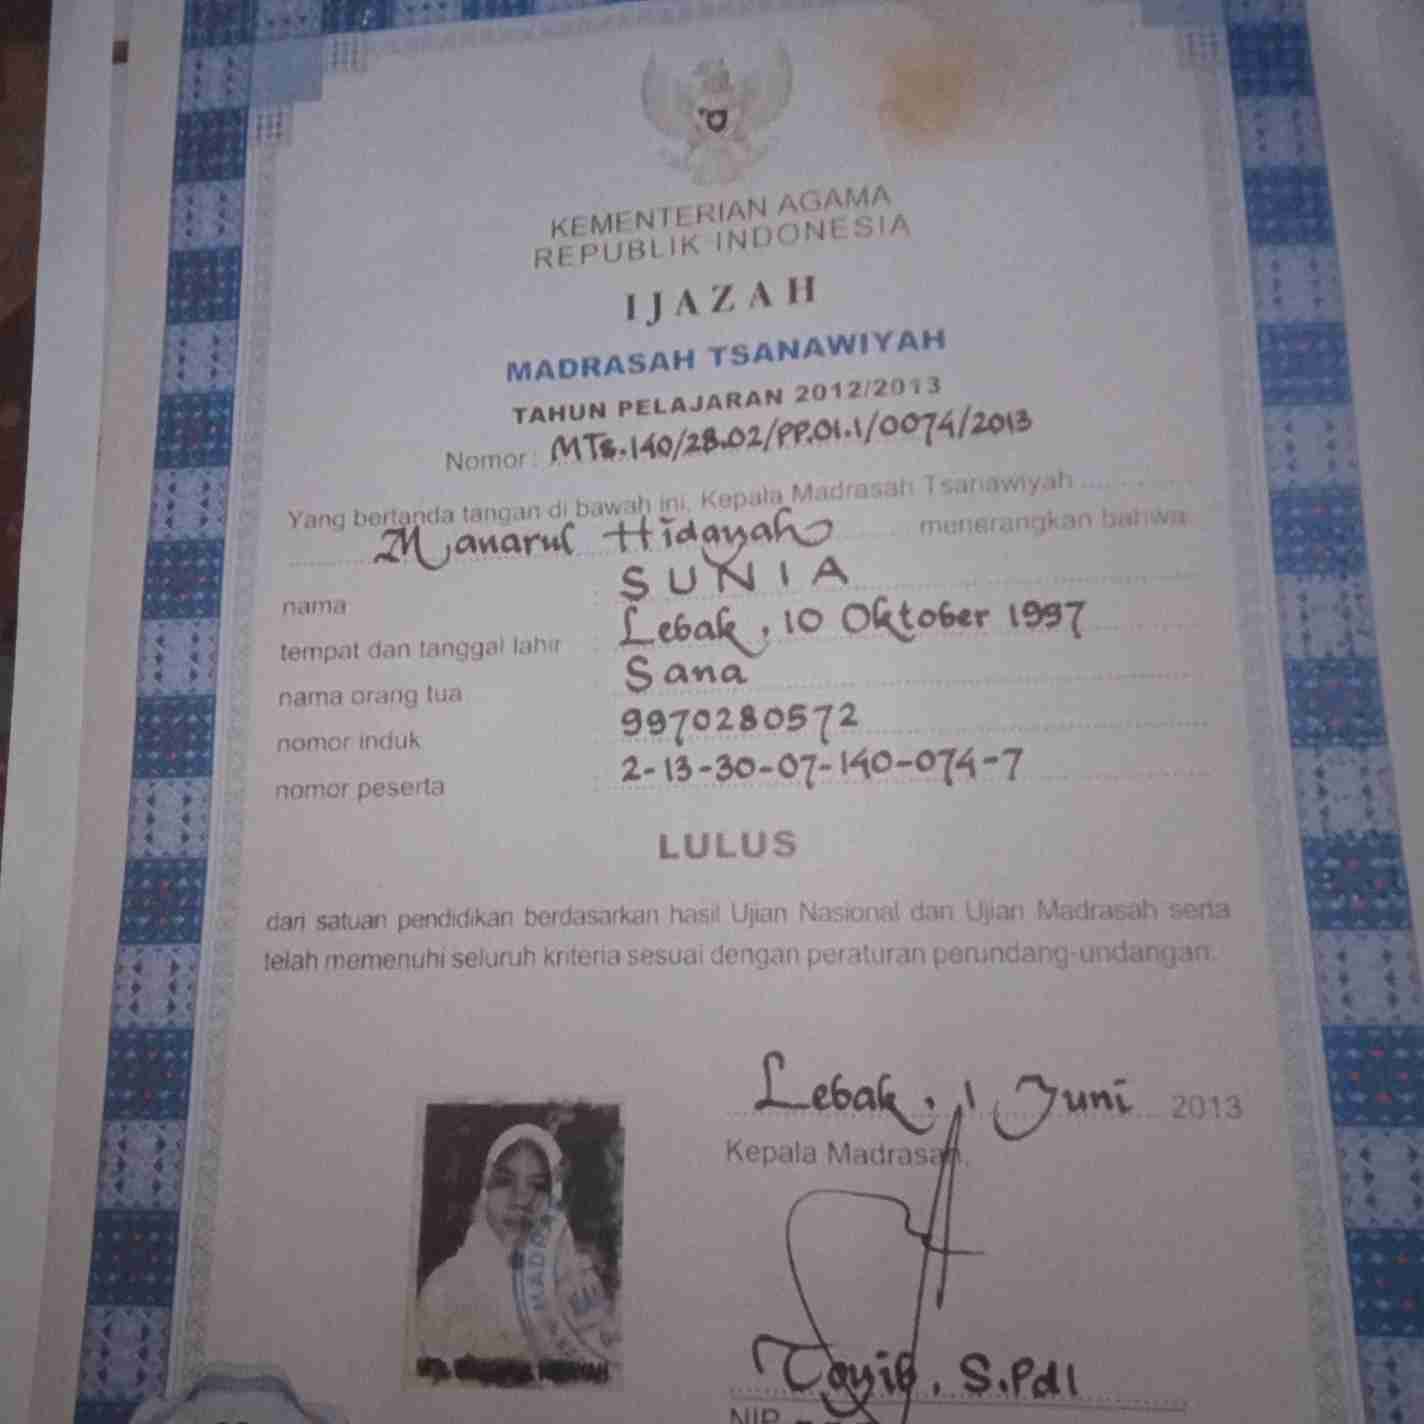 KEMENTERIAN AGAMA
REPUBLIK INDONESIA
IJAZAH
MADRASAH TSANAWIYAH
TAHUN PELAJARAN 2012/2013
Nomor : MTs.140/28.02/PP.01.1/0074/2013
Yang bertanda tangan di bawah ini, Kepala Madrasah Tsanawiyah
Manarul Hidayah menerangkan bahwa
nama : SUNIA
tempat dan tanggal lahir : Lebak, 10 Oktober 1997
nama orang tua : Sana
nomor induk : 9970280572
nomor peserta : 2-13-30-07-140-074-7
LULUS
dari satuan pendidikan berdasarkan hasil Ujian Nasional dan Ujian Madrasah serta
telah memenuhi seluruh kriteria sesuai dengan peraturan perundang-undangan.
Lebak, 1 Juni 2013
Kepala Madrasah,
MADRA
Tayib, S.PdI
NIP